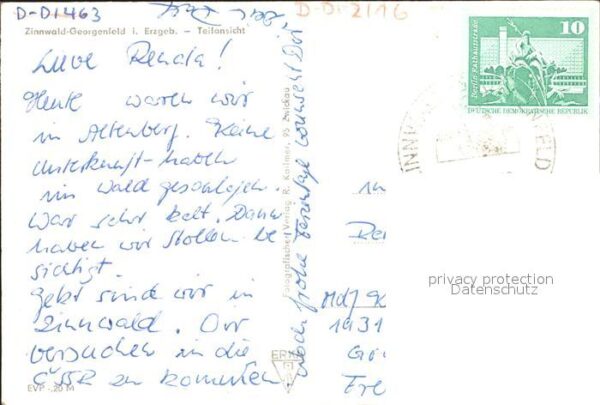 D-D1463
D-D-2116
Zinnwald-Georgenfeld i. Erzgeb. - Teilansicht
Liebe Renata!
Heute waren wir
in Altenberg. Keine
Unterkunft - haben
im Wald geschlafen.
War sehr kalt. Dann
haben wir Stollen be
sichtigt.
Jetzt sind wir in
Zinnwald. Dir
versuchen in die
ČSSR zu kommen
EVP -.20 M
Noch frohe Ferientage wünscht Dir
Fotografischer Verlag R. Kallmer, 95 Zwickau
10
Berlin, Rathausstrasse
DEUTSCHE DEMOKRATISCHE REPUBLIK
MdJ
1931
privacy protection
Datenschutz